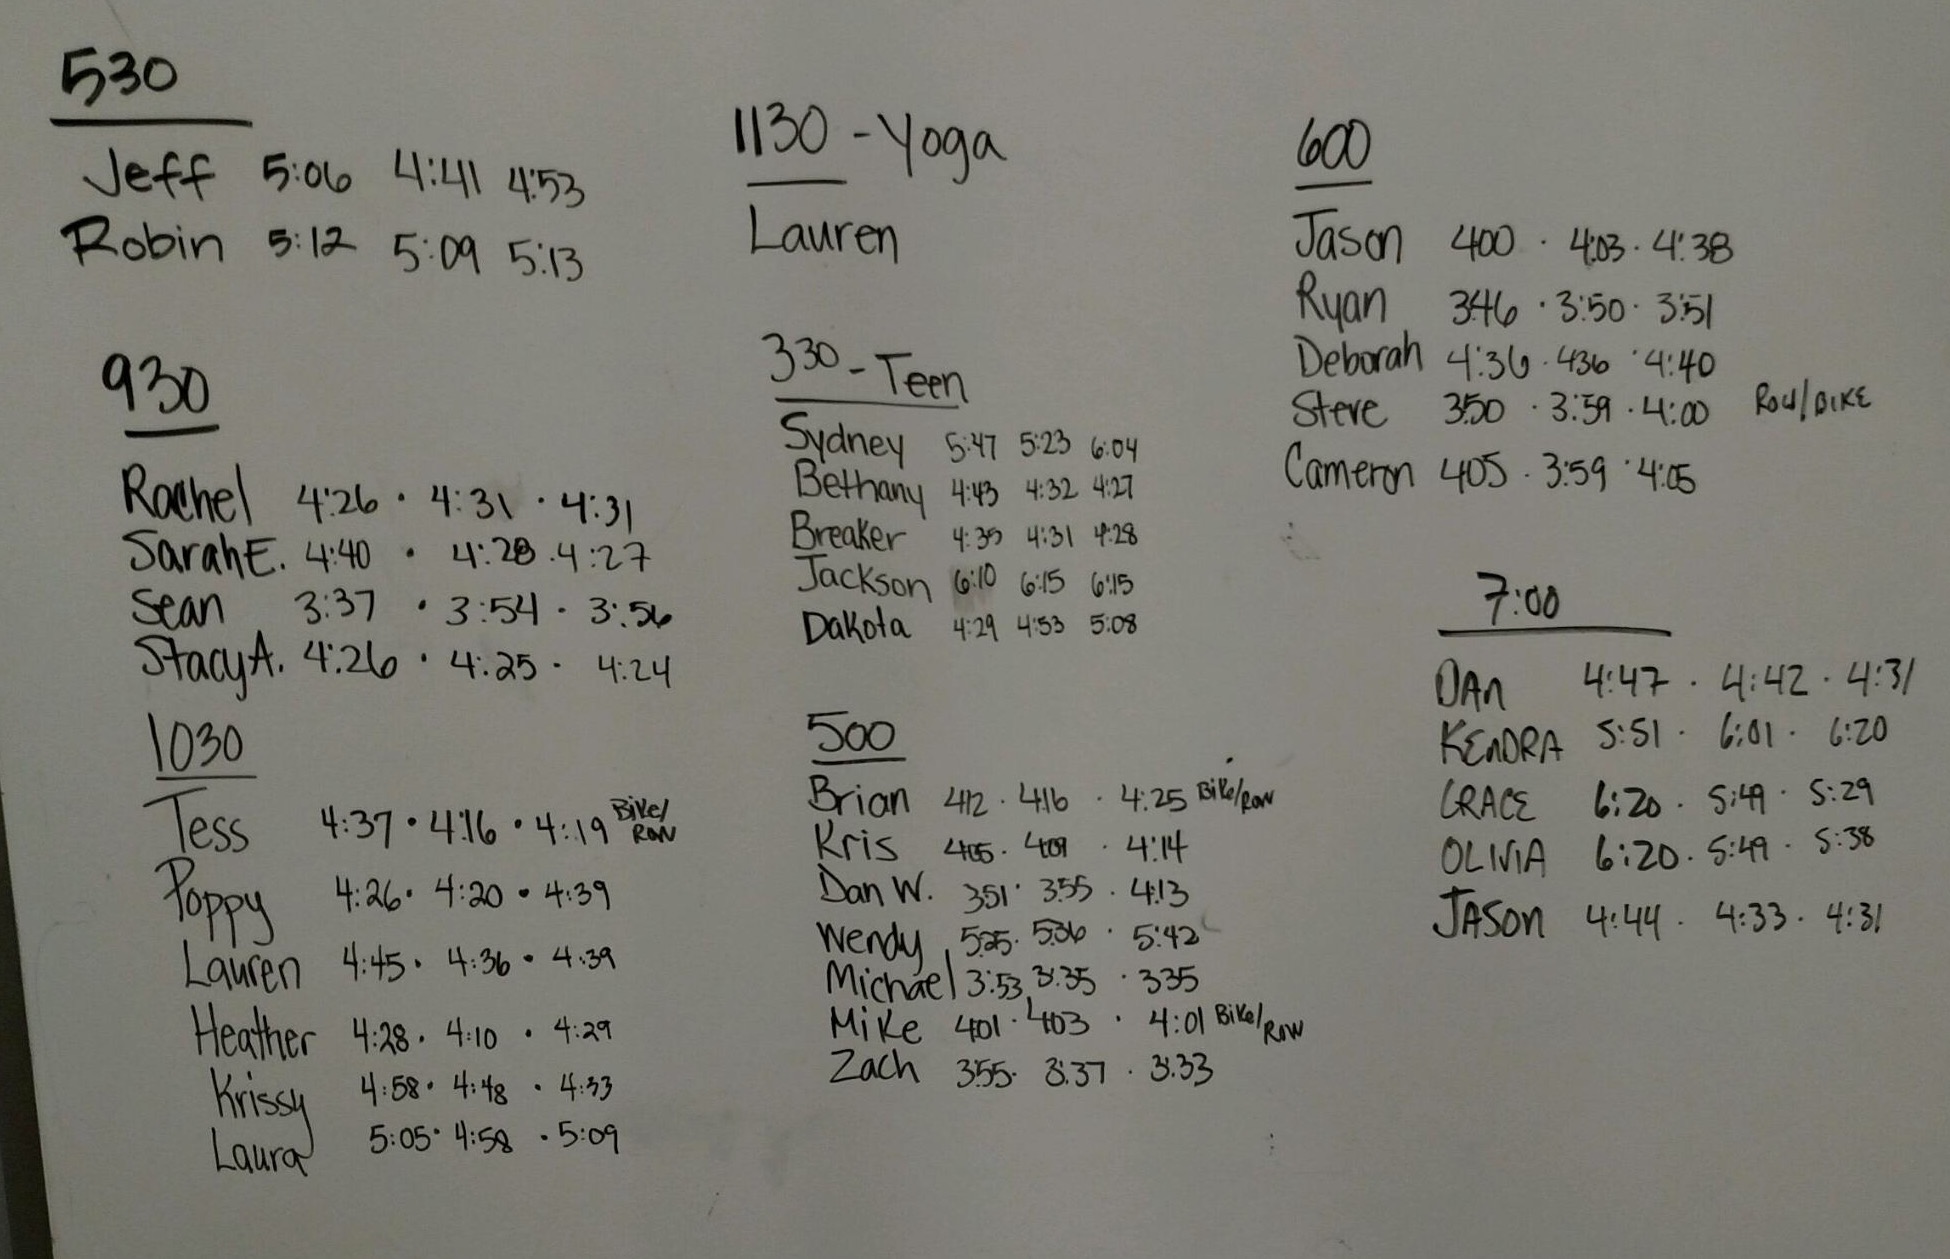 530
Jeff 5:06 4:41 4:53
Robin 5:12 5:09 5:13
930
Rachel 4:26 · 4:31 · 4:31
Sarah E. 4:40 · 4:28 · 4:27
Sean 3:37 · 3:54 · 3:56
Stacy A. 4:26 · 4:25 · 4:24
1030
Tess 4:37 · 4:16 · 4:19 Bike/Row
Poppy 4:26 · 4:20 · 4:39
Lauren 4:45 · 4:36 · 4:39
Heather 4:28 · 4:10 · 4:29
Krissy 4:58 · 4:48 · 4:33
Laura 5:05 · 4:58 · 5:09
1130 - Yoga
Lauren
330 - Teen
Sydney 5:47 5:23 6:04
Bethany 4:43 4:32 4:27
Breaker 4:31 4:28
Jackson 6:10 6:15 6:15
Dakota 4:29 4:53 5:08
500
Brian 412 · 416 · 4:25 Bike/Row
Kris 405 · 409 · 4:14
Dan W. 351 · 355 · 4:13
Wendy 525 · 536 · 5:42
Michael 3:53 3:35 · 335
Mike 401 · 403 · 4:01 Bike/Row
Zach 355 · 3:37 · 3:33
600
Jason 400 · 4:03 · 4:38
Ryan 346 · 3:50 · 3:51
Deborah 4:36 · 436 · 4:40
Steve 350 · 3:59 · 4:00 Row/BIKE
Cameron 405 · 3:59 · 4:05
7:00
DAn 4:47 · 4:42 · 4:31
KEnDRA 5:51 · 6:01 · 6:20
GRACE 6:20 · 5:49 · 5:29
OLIVIA 6:20 · 5:49 · 5:38
JASON 4:44 · 4:33 · 4:31